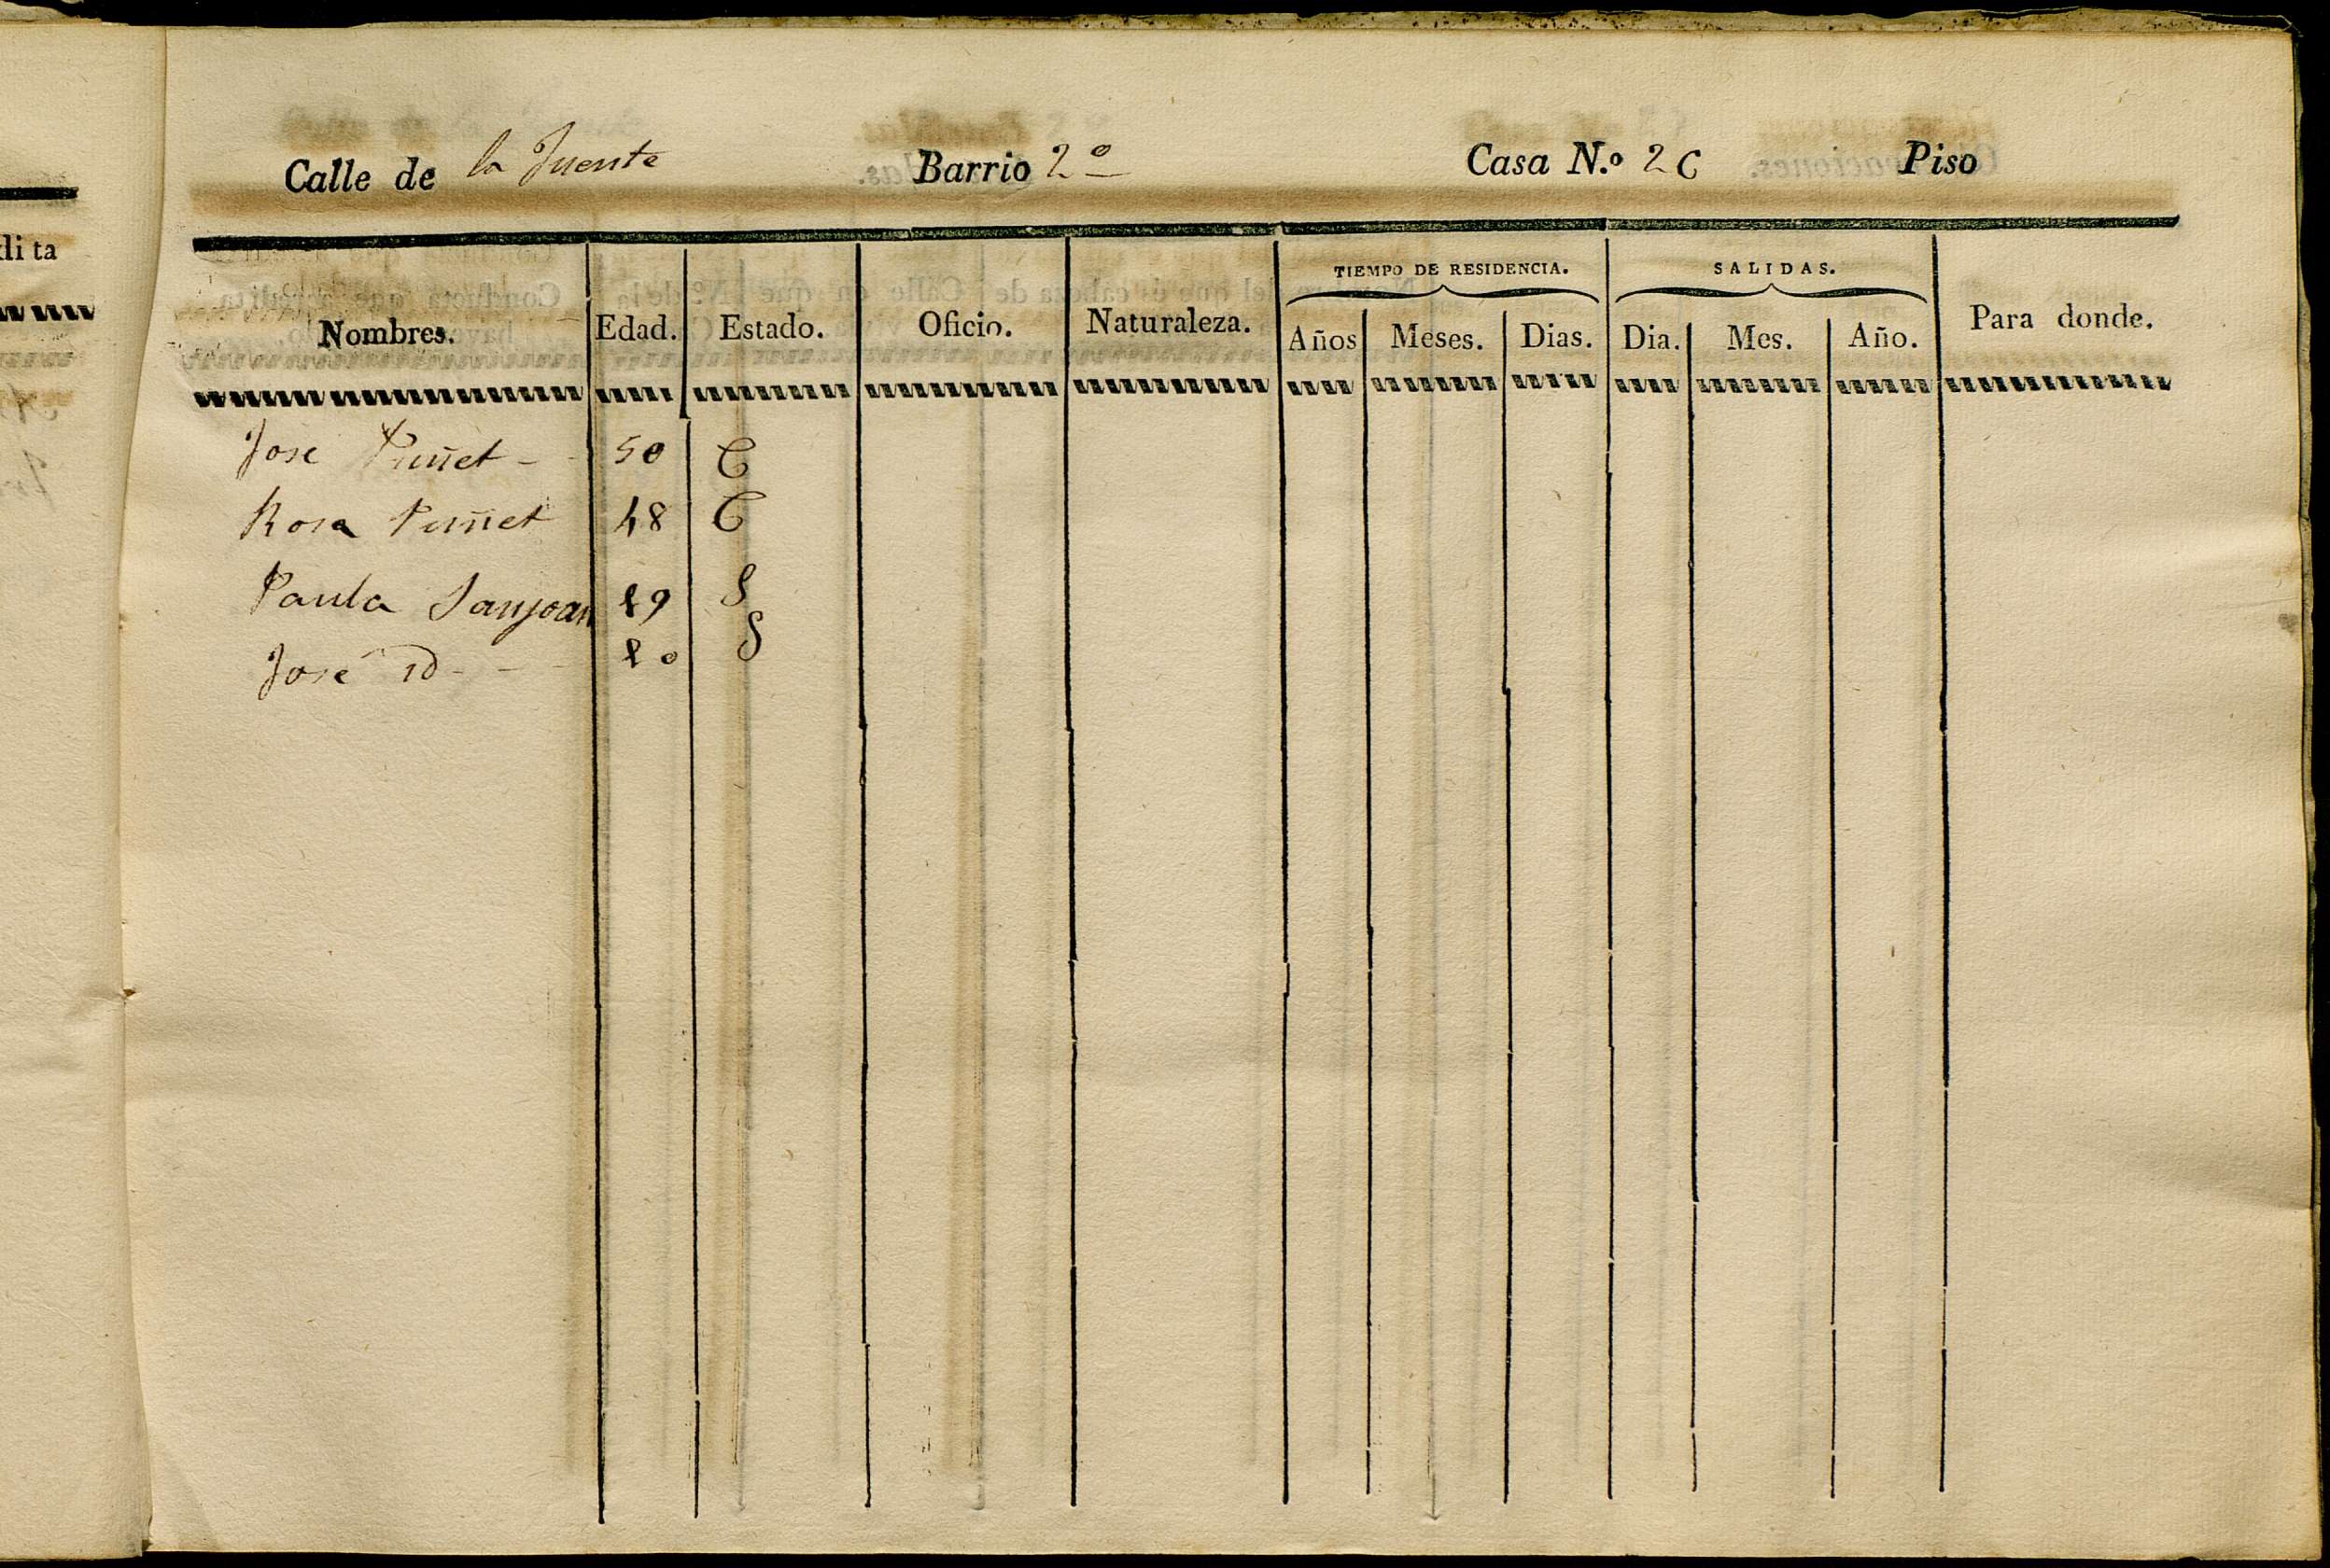 Calle de la Fuente Barrio 2º Casa N.º 26 Piso
dita
TIEMPO DE RESIDENCIA. SALIDAS.
Nombres. Edad. Estado. Oficio. Naturaleza. Años Meses. Dias. Dia. Mes. Año. Para donde.
Jose Puñet - 50 C
Rosa Puñet 48 C
Paula Sanjoan 19 S
José id - - 10 S